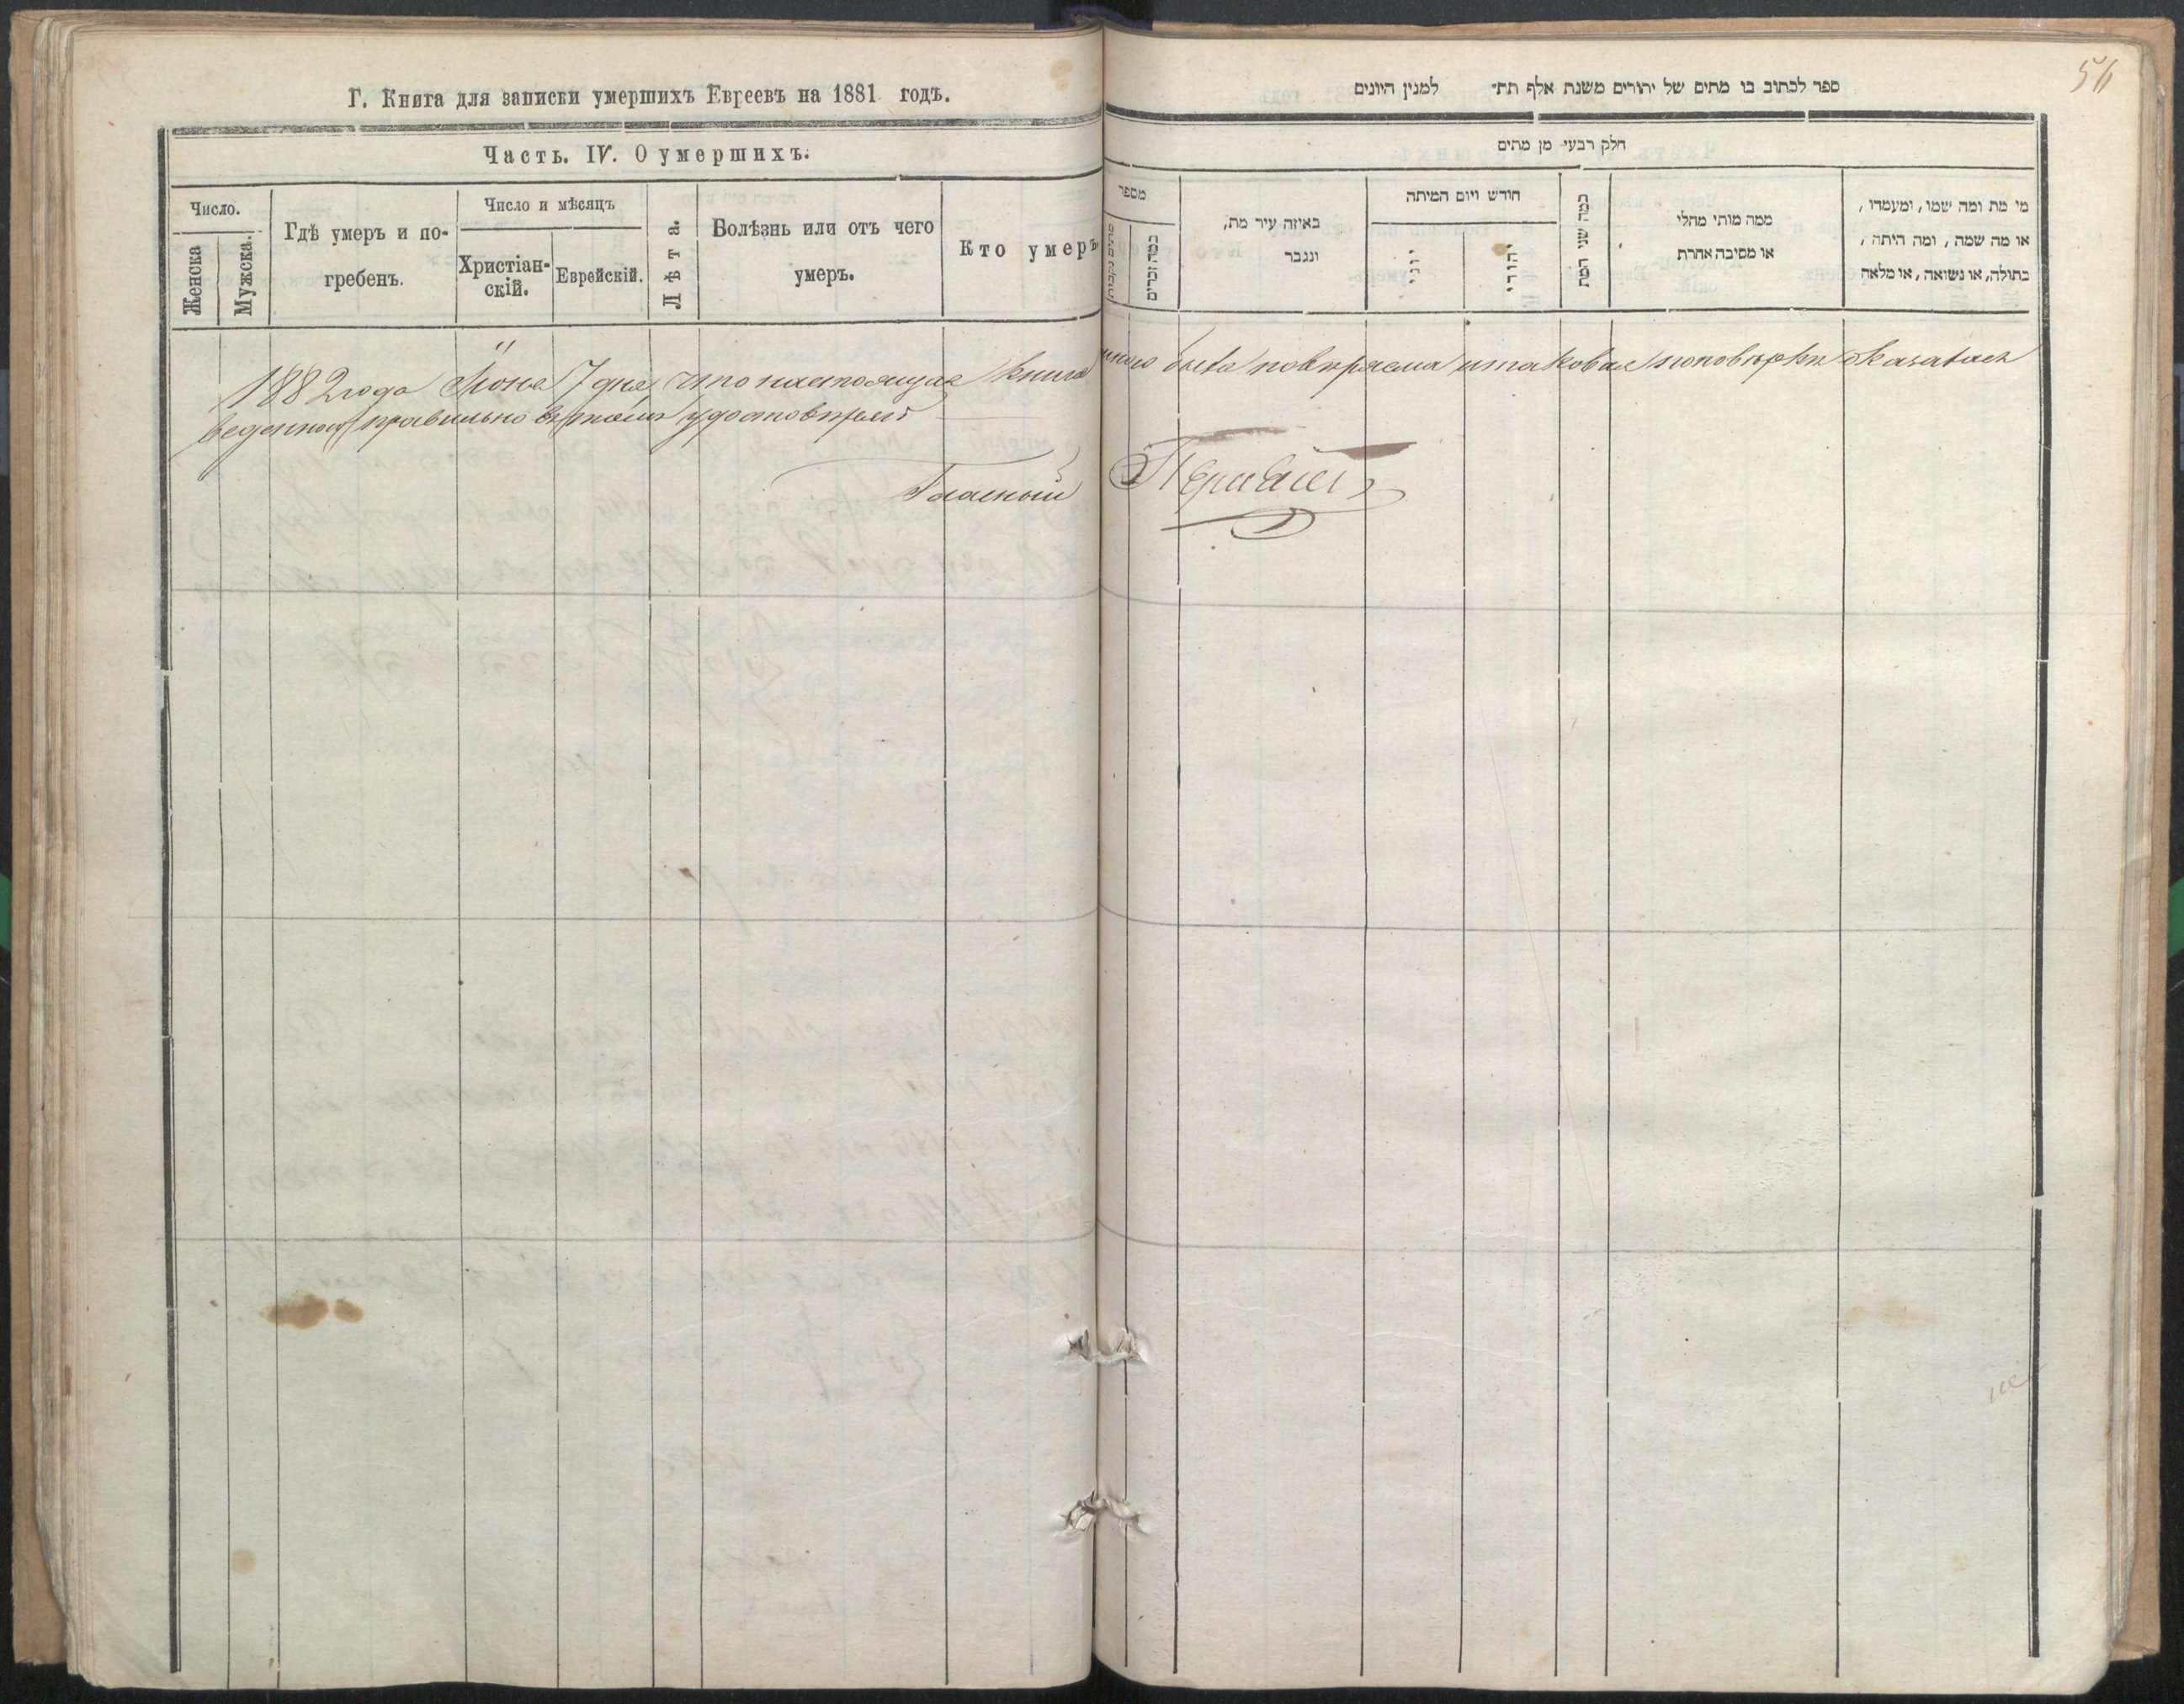 Г. Книга для записки умершихъ Евреевъ на 1881 годъ.
Часть. IV. О умершихъ.
Число.
Женска
Мужска.
Гдѣ умеръ и по-
гребенъ.
Число и мѣсяцъ
Христіан-
скій.
Еврейскій.
Лѣта.
Болѣзнь или отъ чего
умеръ.
Кто умеръ
56
ספר לכתוב בו מתים של יהודים משנת אלף תת״ למנין היונים
חלק רבעי מן מתים
מספר
כמה זכרים
באיזה עיר מת,
ונגבר
חודש ויום המיתה
יווני
יהודי
כמה שני המת
ממה מותי מחלי
או מסיבה אחרת
מי מת ומה שמו, ומעמדו,
או מה שמה, ומה היתה,
בתולה, או נשואה, או מלאה
1882 года Іюня 7 дня, что настоящая книга мною была повѣряема и таковая по повѣркѣ оказалась
веденною правильно въ томъ удостовѣряю
Гласный